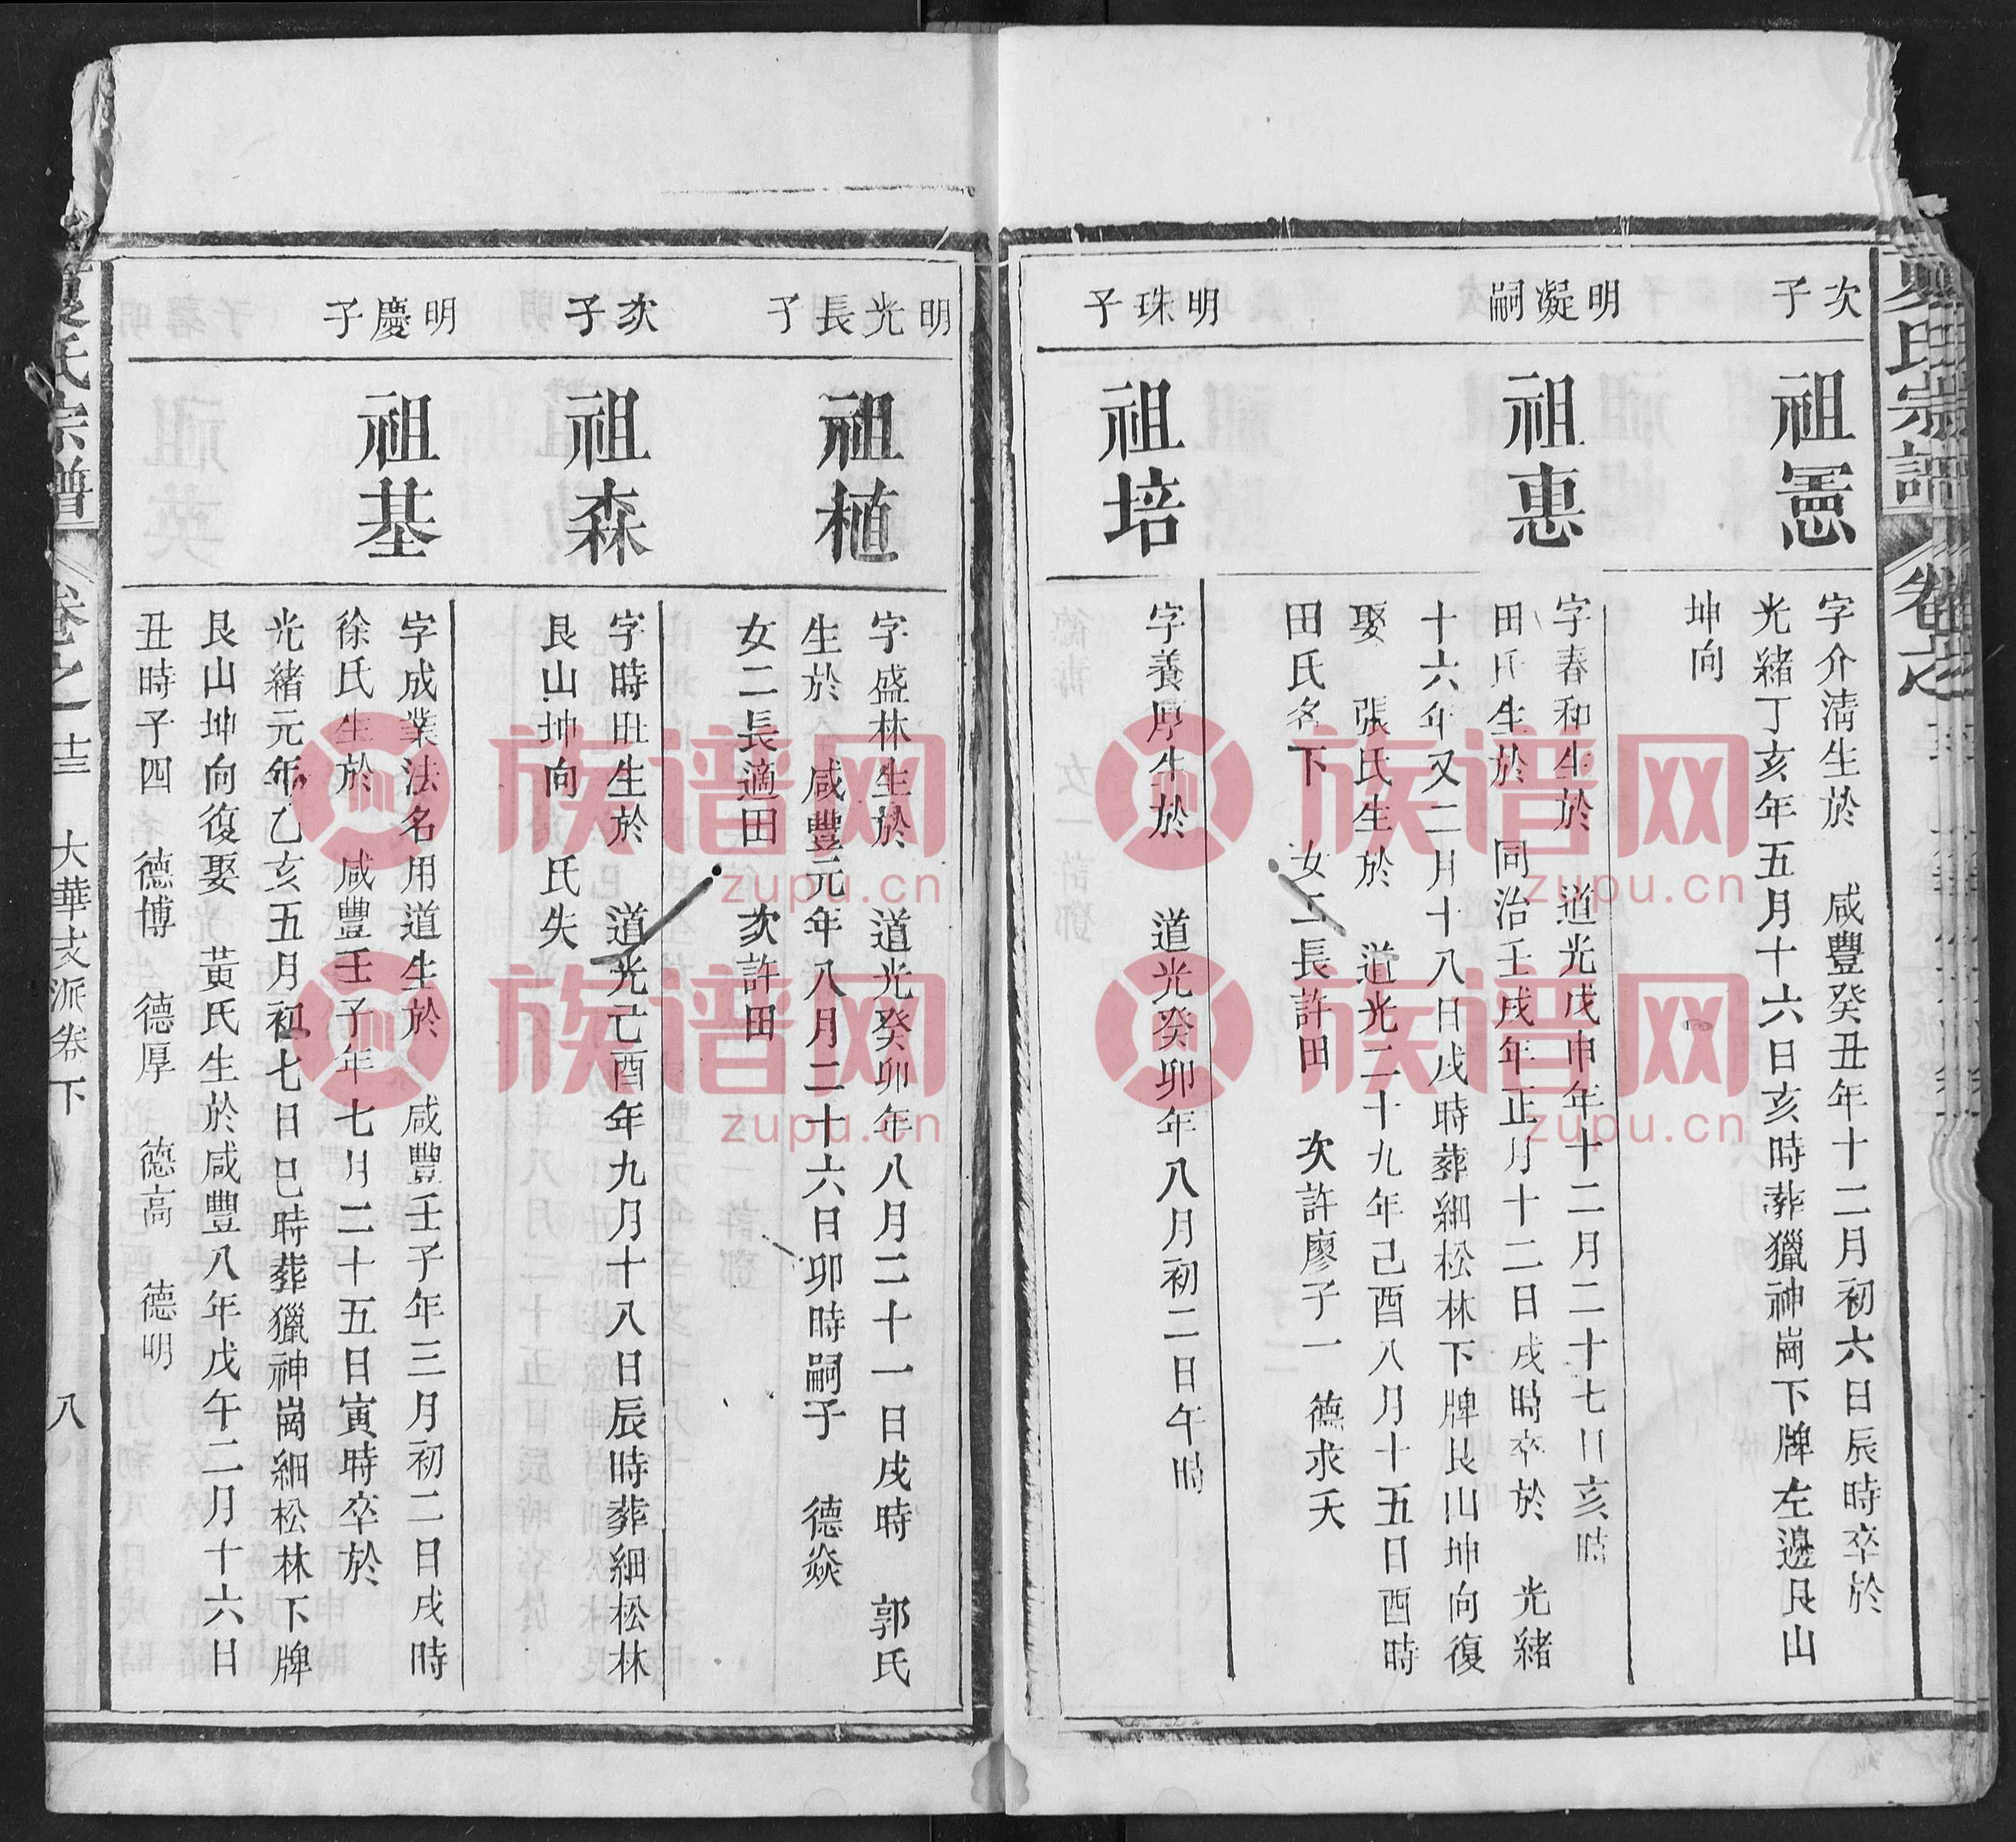 次子
祖憲
字介淸生於 咸豐癸丑年十二月初六日辰時卒於
光緒丁亥年五月十六日亥時葬獵神崗下牌左邊艮山
坤向
明凝嗣
祖惠
字春和生於 道光戊申年十二月二十七日亥時
田氏生於 同治壬戌年正月十二日戌時卒於 光緒
十六年又二月十八日戌時葬細松林下牌艮山坤向復
娶 張氏生於 道光二十九年己酉八月十五日酉時
田氏名下 女二長許田 次許廖子一 德求夭
明珠子
祖培
字養厚生於 道光癸卯年八月初二日午時
明光長子
祖植
字盛林生於 道光癸卯年八月二十一日戌時 郭氏
生於 咸豐元年八月二十六日卯時嗣子 德焱
女二長適田 次許田
次子
祖森
字時旺生於 道光己酉年九月十八日辰時葬細松林
艮山坤向 氏失
明慶子
祖基
字成業法名用道生於 咸豐壬子年三月初二日戌時
徐氏生於 咸豐壬子年七月二十五日寅時卒於
光緒元年乙亥五月初七日巳時葬獵神崗細松林下牌
艮山坤向復娶 黃氏生於咸豐八年戊午二月十六日
丑時子四 德博 德厚 德高 德明
夏氏宗譜 卷之十三 大華支派卷下 八
族谱网
zupu.cn
族谱网
zupu.cn
族谱网
zupu.cn
族谱网
zupu.cn